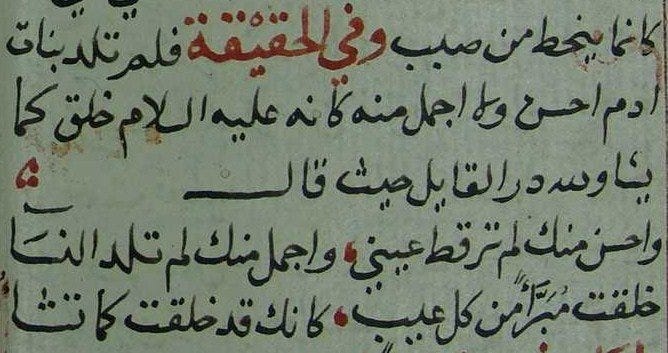 كانما ينحط من صبب وفي الحقيقة فلم تلد بنات
ادم احسن ولا اجمل منه كانه عليه السلام خلق كما
يشا ولله در القايل حيث قال
واحسن منك لم ترقط عيني واجمل منك لم تلد النسا
خلقت مبرًّأً من كل عيب كانك قد خلقت كما تشا